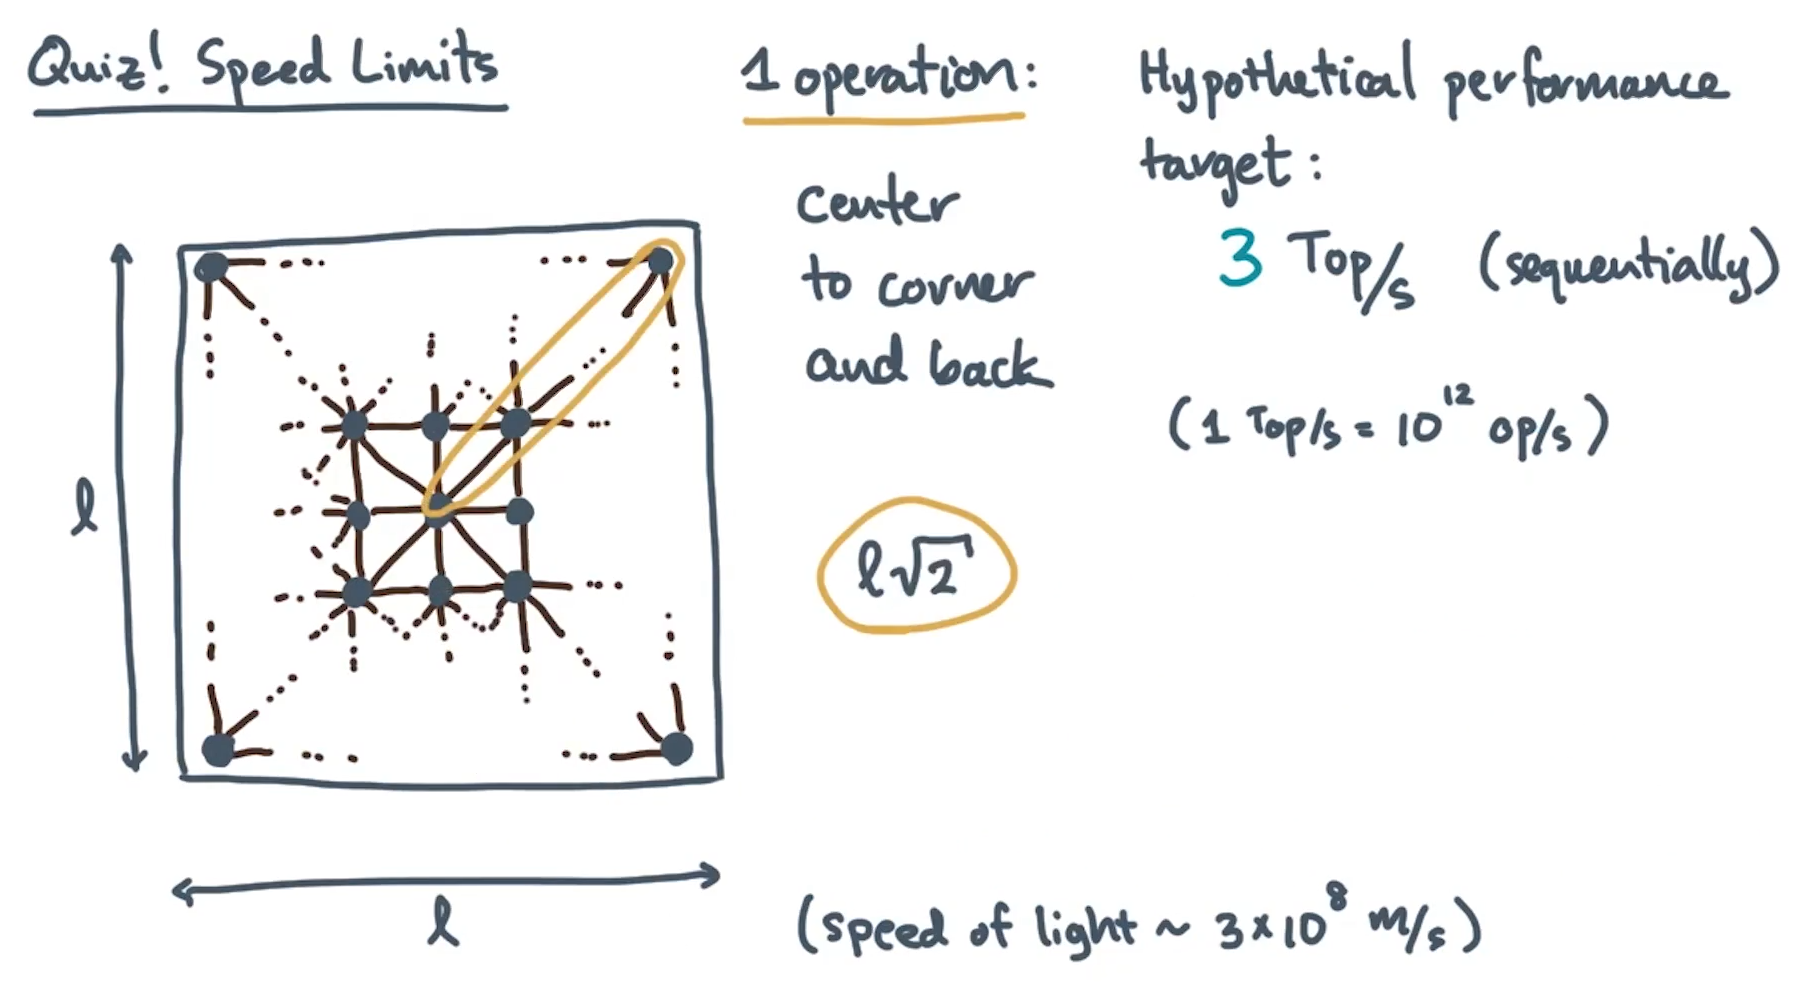 Quiz! Speed Limits
1 operation:
center
to corner
and back
l√2
Hypothetical performance
target:
3 Top/s (sequentially)
(1 Top/s = 10¹² op/s)
l
l
(speed of light ~ 3×10⁸ m/s)